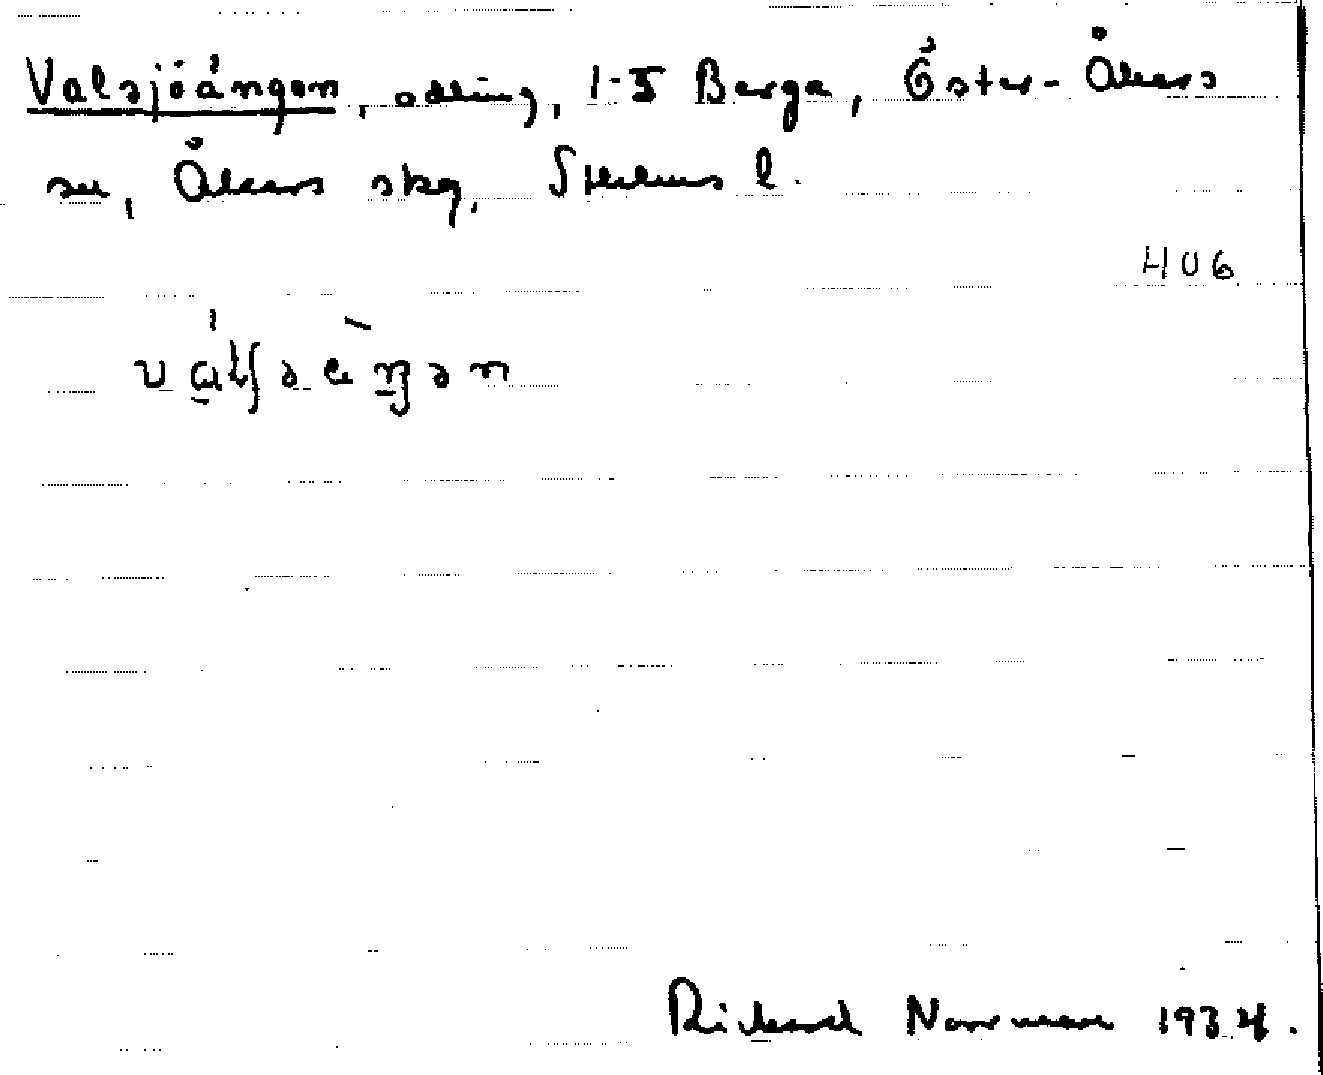 Valsjöängen, odling, 1-5 Berga, Öster-Åkers
sn, Åkers skg, Sthlms l.
406
Rickard Norrman 1934.